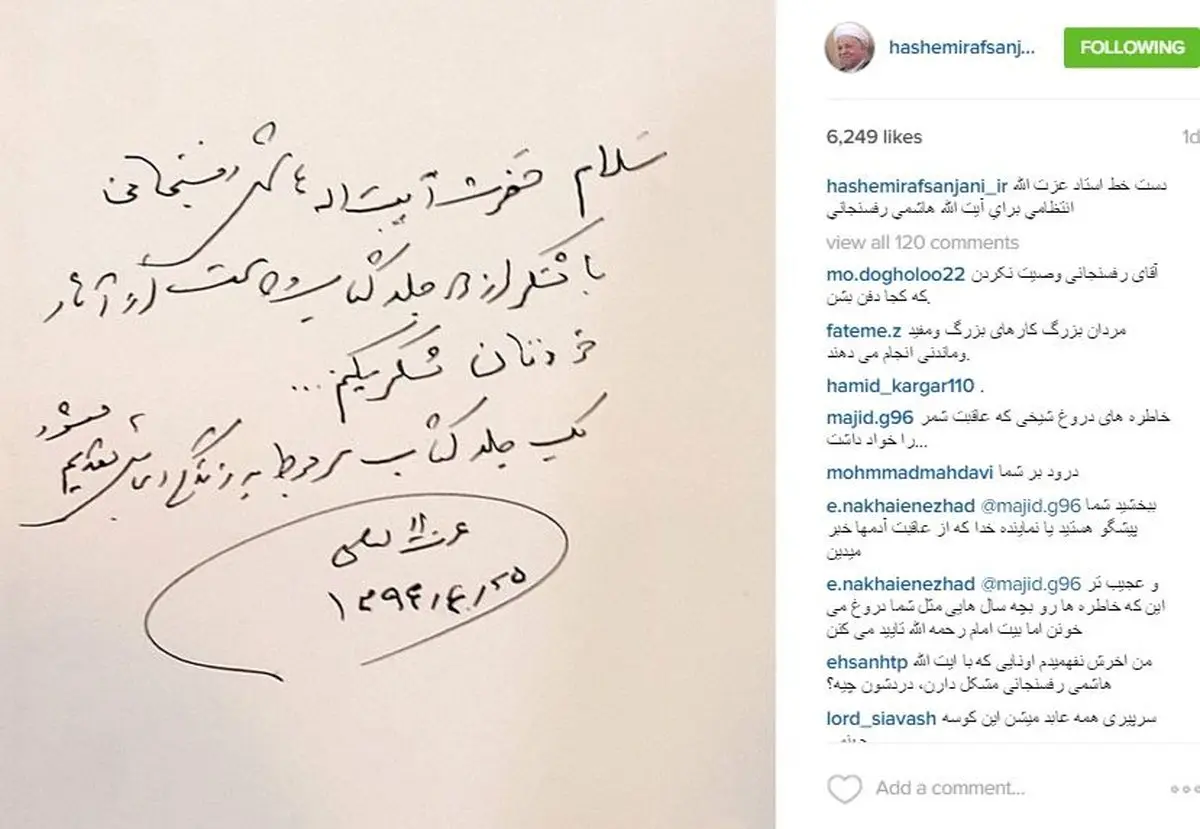 سلام حضرت آیت اله هاشمی رفسنجانی
با تشکر از جلد کتاب و از آثار
خودتان تشکر میکنم...
یک جلد کتاب مربوط به زندگی تقدیم میشود
عزت اله انتظامی
۱۳۹۴/۴/۲۵
hashemirafsanj...
FOLLOWING
6,249 likes
1d
hashemirafsanjani_ir دست خط استاد عزت الله
انتظامی براي آیت الله هاشمی رفسنجانی
view all 120 comments
mo.dogholoo22 آقای رفسنجانی وصیت نکردن
که کجا دفن بشن.
fateme.z مردان بزرگ کارهای بزرگ ومفید
وماندنی انجام می دهند.
hamid_kargar110 .
majid.g96 خاطره های دروغ شیخی که عاقبت شمر
را خواد داشت...
mohmmadmahdavi درود بر شما
e.nakhaienezhad @majid.g96 ببخشید شما
پیشگو هستید یا نماینده خدا که از عاقبت آدمها خبر
میدین
e.nakhaienezhad @majid.g96 و عجیب تر
این که خاطره ها رو بچه سال هایی مثل شما دروغ می
خونن اما بیت امام رحمه الله تایید می کنن
ehsanhtp من اخرش نفهمیدم اونایی که با ایت الله
هاشمی رفسنجانی مشکل دارن، دردشون چیه؟
lord_siavash سرپیری همه عابد میشن این کوسه
Add a comment...